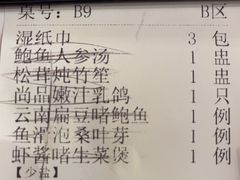 桌号：B9 B区
湿纸巾 3 包
鲍鱼人参汤 1 盅
松茸炖竹笙 1 盅
尚品嫩汁乳鸽 1 只
云南扁豆啫鲍鱼 1 例
鱼滑泡桑叶芽 1 例
虾酱啫生菜煲 1 例
【少盐】